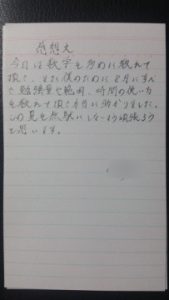 感想文
今日は数学を多めに教えて
頂く、また僕のために8月にすべ
き勉強量や範囲、時間の使い方
を教えて頂き本当に助かりました。
この夏を無駄にしないよう頑張ろう
と思います。